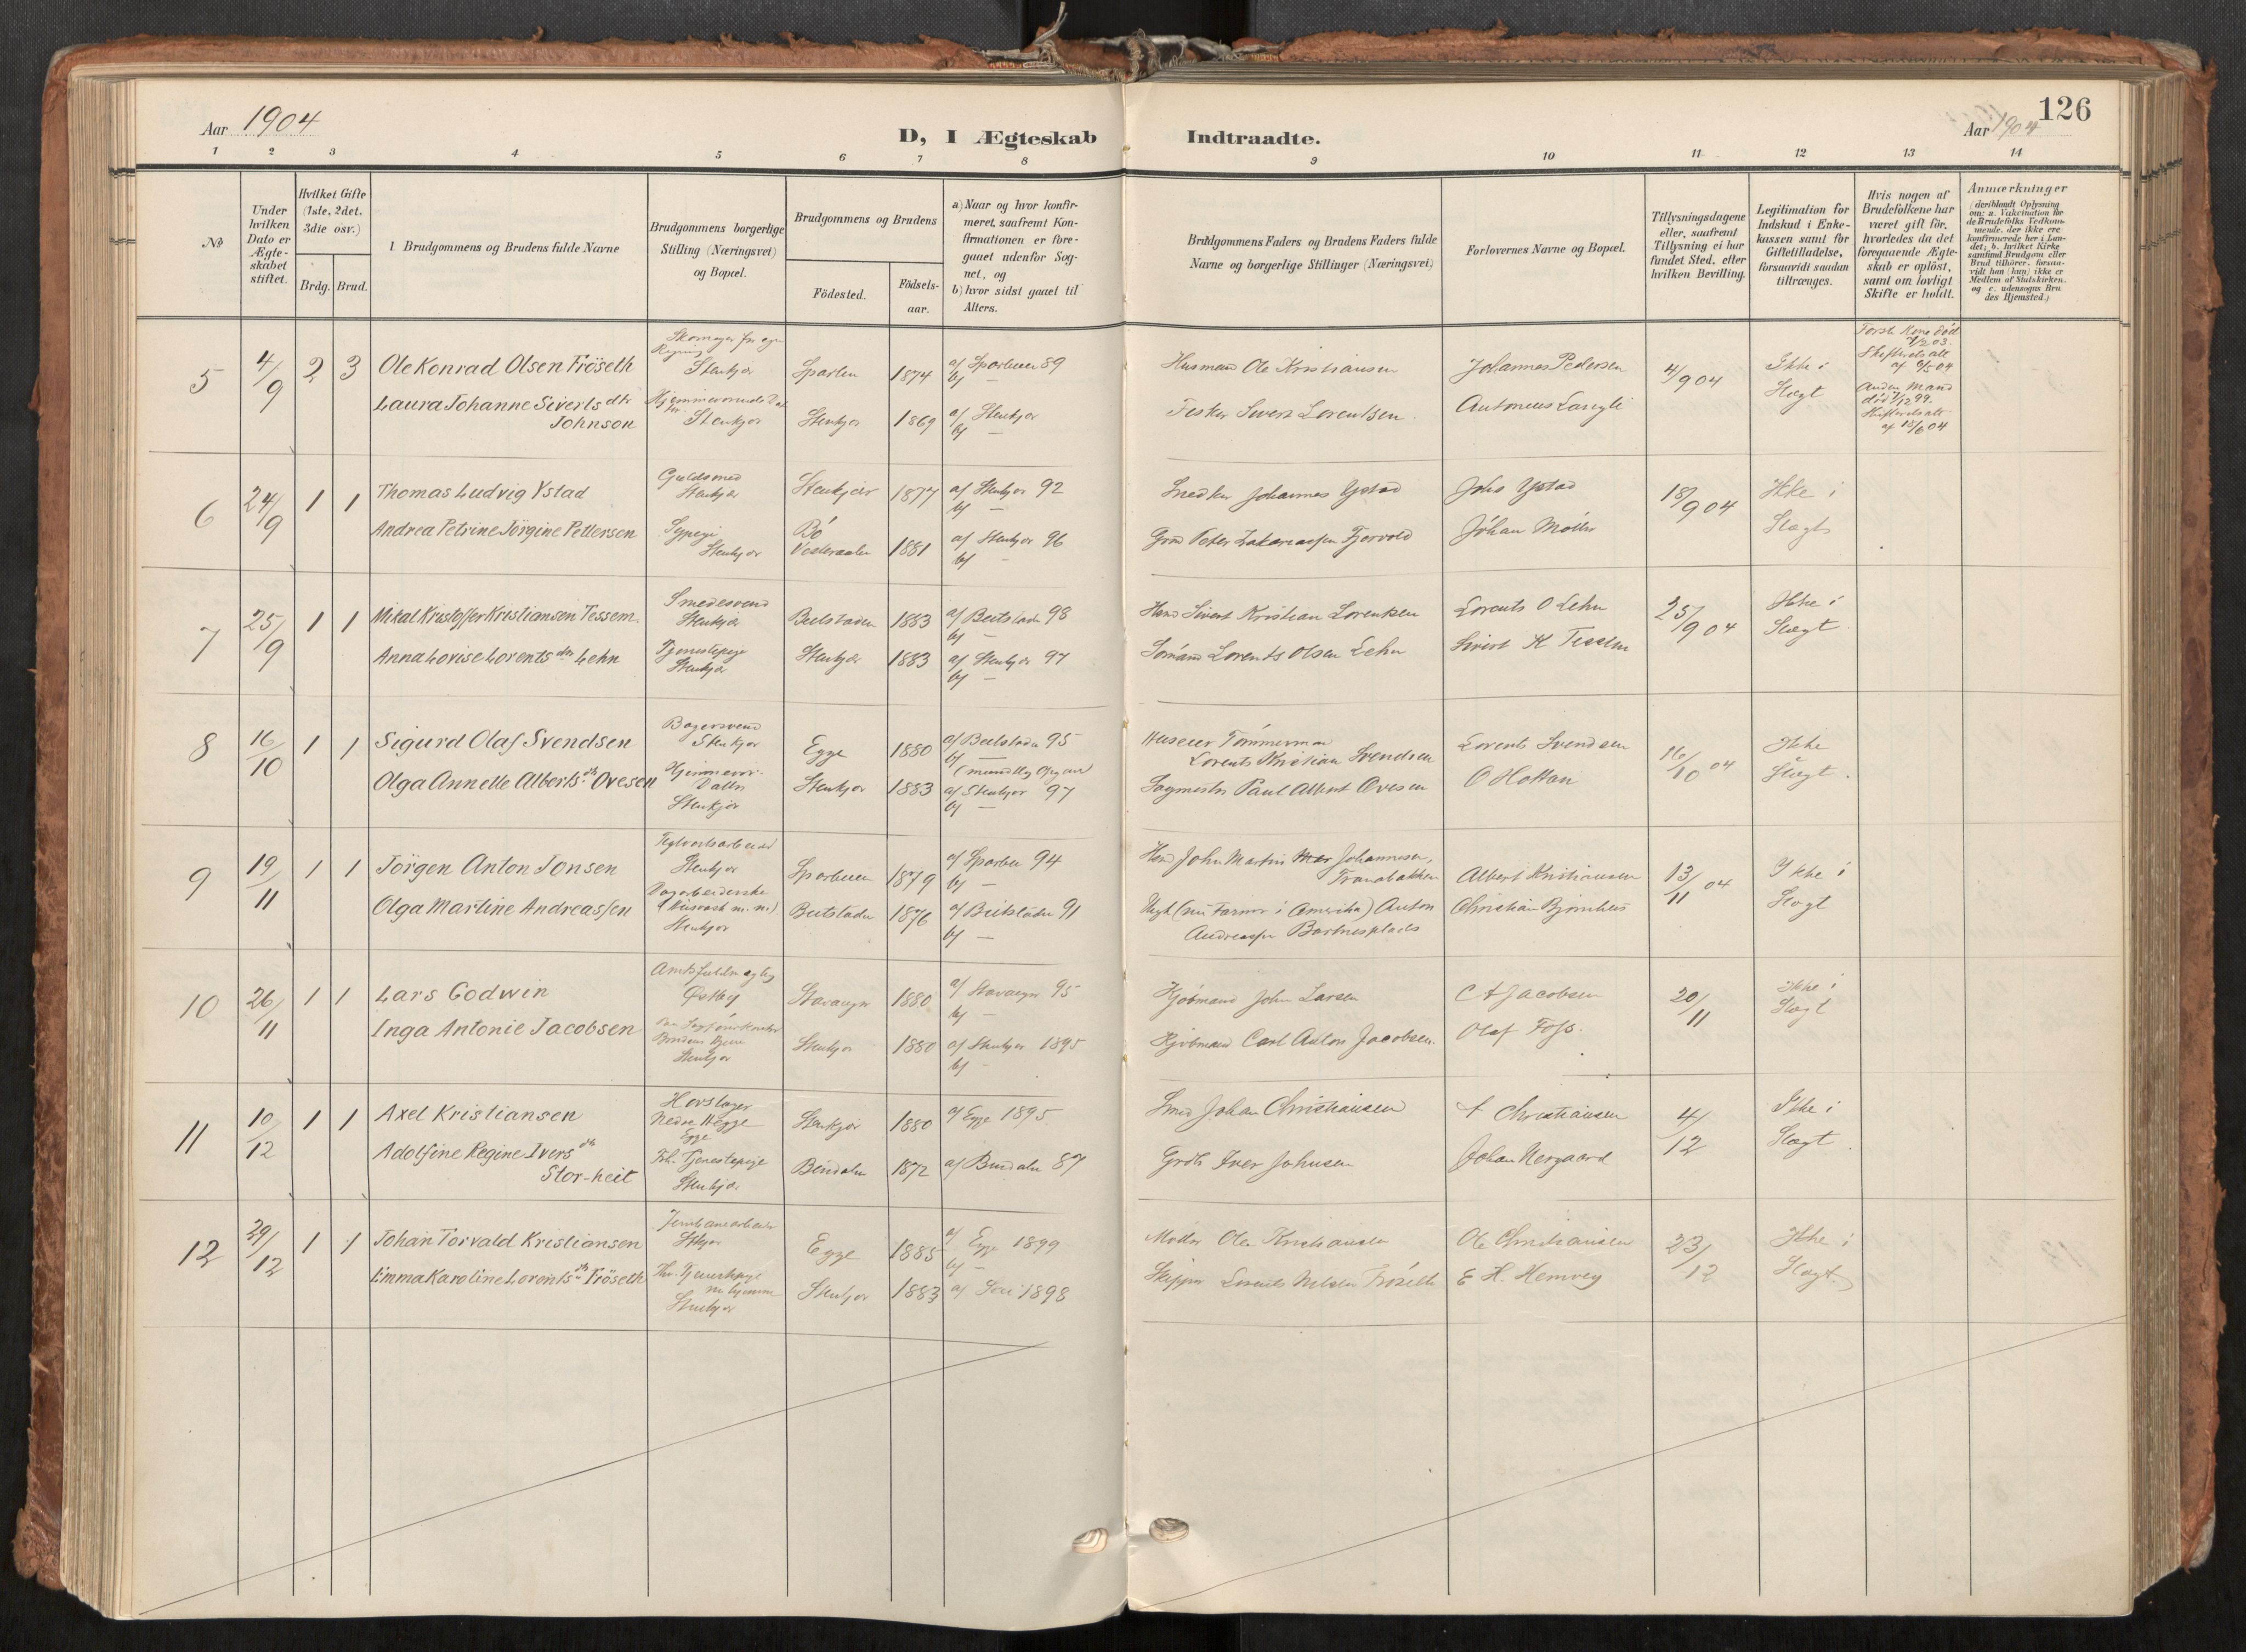 Aar 1904
D, I Ægteskab Indtraadte.
126
Aar 1904
1 2 3 4 5 6 7 8 9 10 11 12 13 14
№
Under hvilken Dato er Ægteskabet stiftet.
Hvilket Gifte (1ste, 2det, 3die osv.)
Brdg. Brud.
Brudgommens og Brudens fulde Navne
Brudgommens borgerlige Stilling (Næringsvei) og Bopæl.
Brudgommens og Brudens
Födested.
Födselsaar.
a) Naar og hvor konfirmeret, saafremt Konfirmationen er foregaaet udenfor Sognet, og
b) hvor sidst gaaet til Alters.
Brudgommens Faders og Brudens Faders fulde Navne og borgerlige Stillinger (Næringsvei)
Forlovernes Navne og Bopæl.
Tillysningsdagene eller, saafremt Tillysning ei har fundet Sted, efter hvilken Bevilling.
Legitimation for Indskud i Enkekassen samt for Giftetilladelse, forsaavidt saadan tiltrænges.
Hvis nogen af Brudefolkene har været gift för, hvorledes da det foregaaende Ægteskab er oplöst, samt om lovligt Skifte er holdt.
Anmærkninger (deriblandt Oplysning om: a. Vakcination for de Brudefolks Vedkommende, der ikke ere konfirmerede her i Landet; b. hvilket Kirkesamfund Brudgom eller Brud tilhörer, forsaavidt han (hun) ikke er Medlem af Statskirken, og c. udensogns Brudes Hjemsted.)
5 4/9 2 3 Ole Konrad Olsen Fröseth
Skomager for egen Regning Stenkjær
Sparbu 1874 a/ Sparbuen 89 b/ —
Husmand Ole Kristiansen
Johannes Pedersen
4/9 04
Ikke i Slægt
Første Kone död 03. Skifteretsatt af 04
Laura Johanne Siverts dtr Johnson
Stenkjær
Stenkjær 1869 a/ Stenkjær b/ —
Fisker Sivert Lorentsen
Antonius Langli
Anden Mand död 99. Skifteretsatt af 18/6 04
6 24/9 1 1 Thomas Ludvig Ystad
Guldsmed Stenkjær
Stenkjær 1877 a/ Stenkjær 92 b/ —
Snedker Johannes Ystad
Johs Ystad
18/9 04
Ikke i Slægt
Andrea Petrine Jörgine Pettersen
Sypige Stenkjær
Bö Vesteraalen 1881 a/ Stenkjær 96 b/ —
Grd Peter Zakariassen Fjervold
Johan Möller
7 25/9 1 1 Mikal Kristoffer Kristiansen Tessem
Smedesvend Stenkjær
Beitstaden 1883 a/ Beitstaden 98 b/ —
Hmd Sivert Kristian Lorentsen
Lorents O Lehn
25/9 04
Ikke i Slægt
Anna Lovise Lorents dtr Lehn
Tjenestepige Stenkjær
Stenkjær 1883 a/ Stenkjær 97 b/ —
Sömand Lorents Olsen Lehn
Sivert K Tessem
8 16/10 1 1 Sigurd Olaf Svendsen
Bagersvend Stenkjær
Egge 1880 a/ Beitstaden 95 b/ — (mundtlig Opgave)
Huseier Tømmermand Lorents Kristian Svendsen
Lorents Svendsen
16/10 04
Ikke Slægt
Olga Annette Alberts dtr Ovesen
Hjemmevær. Datter Stenkjær
Stenkjær 1883 a/ Stenkjær 97 b/ —
Sagmester Paul Albert Ovesen
O Hottan
9 19/11 1 1 Jörgen Anton Jonsen
Teglverksarbeider Stenkjær
Sparbuen 1879 a/ Sparbu 94 b/ —
Hmd John Martin Johannesen, Tranabakken
Albert Kristiansen
13/11 04
Ikke i Slægt
Olga Martine Andreassen
Dagarbeiderske (Husvask m.m.) Stenkjær
Beitstaden 1876 a/ Beitstaden 91 b/ —
Ungk (nu Farmer i Amerika) Anton Andreassen Bartnesplads
Christian Bjørnhus
10 26/11 1 1 Lars Godwin
Amtsfuldmægtig
Stavanger 1880 a/ Stavanger 95 b/ —
Kjøbmand John Larsen
C A Jacobsen
20/11
Ikke i Slægt
Inga Antonie Jacobsen
Stenkjær
Stenkjær 1880 a/ Stenkjær 1895 b/ —
Kjøbmand Carl Anton Jacobsen.
Olaf Foss.
11 10/12 1 1 Axel Kristiansen
Hovslager Nedre Hegge Egge
Stenkjær 1880 a/ Egge 1895
Smed Johan Christiansen
A Christiansen
4/12
Ikke i Slægt
Adolfine Regine Ivers dtr Stor-heit
Frh. Tjenestepige Stenkjær
Bindalen 1872 a/ Bindalen 87
Grdb Iver Johnsen
Johan Nergaard
12 29/12 1 1 Johan Torvald Kristiansen
Jernbanearbeider Stkjær
Egge 1885 a/ Egge 1899 b/ —
Møller Ole Kristiansen
Ole Christiansen
23/12
Ikke i Slægt.
Emma Karoline Lorents dtr Fröseth
Fhv. Tjenestepige nu hjemme Stenkjær
Stenkjær 1883 a/ 1898
Skipper Lorents Nilsen Fröseth
E H. Hemvey